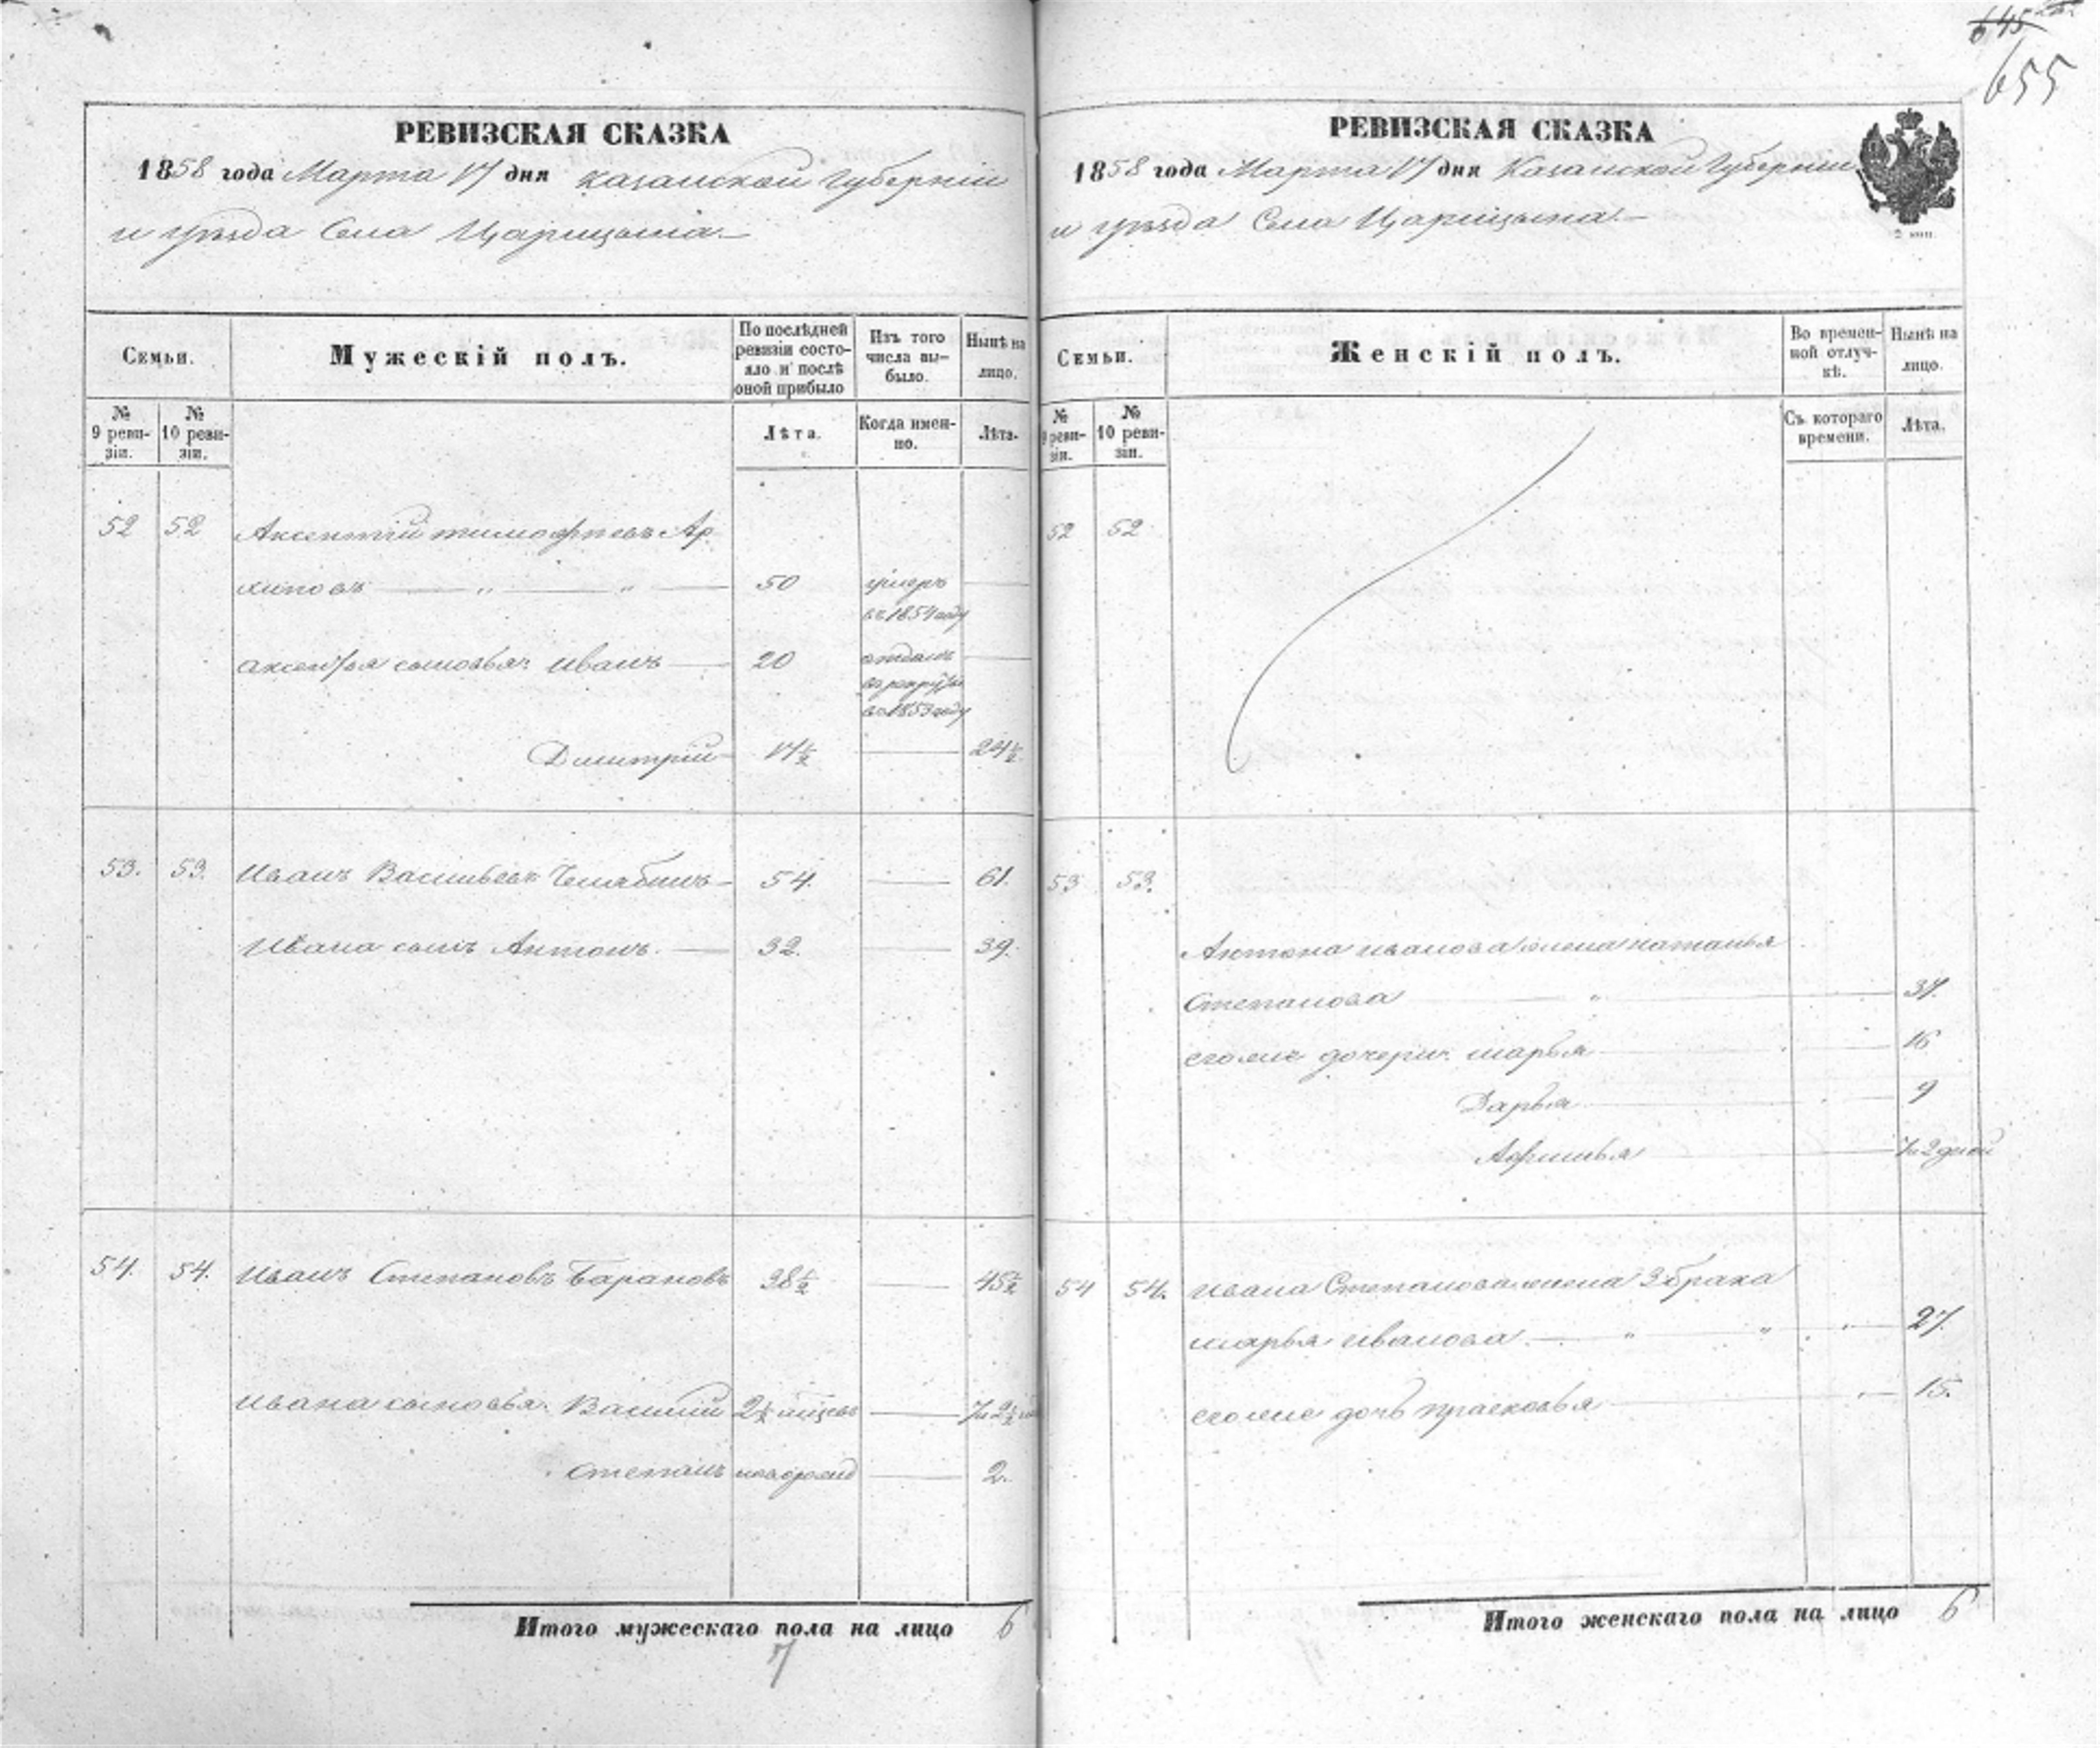 645
655
РЕВИЗСКАЯ СКАЗКА
1858 года Марта 17 дня Казанской Губерніи
и уѣзда Села Царицына
Семьи.
Мужескій полъ.
По послѣдней ревизіи состояло и послѣ оной прибыло
Изъ того числа выбыло.
Нынѣ на лицо.
№ 9 ревизіи.
№ 10 ревизіи.
Лѣта.
Когда именно.
Лѣта.
52 52 Аксентій тимофѣевъ Ар
хиповъ 50 умеръ
въ 1854 году
аксентья сыновья: иванъ 20 отданъ
въ рекруты
въ 1853 году
Дмитрій 17½ 24½
53. 53. Иванъ Васильевъ Челябинъ 54. 61.
Ивана сынъ Антонъ. 32. 39.
54. 54. Иванъ Степановъ Барановъ 38½ 45½
Ивана сыновья: Василий 2½ мѣсяцъ 7 и 2½
степанъ новорожд 2.
Итого мужескаго пола на лицо 6
7
РЕВИЗСКАЯ СКАЗКА
1858 года Марта 17 дня Казанской Губерніи
и уѣзда Села Царицына
2 коп.
Семьи.
Женскій полъ.
Во временной отлучкѣ.
Нынѣ на лицо.
№ 9 ревизіи.
№ 10 ревизіи.
Съ котораго времени.
Лѣта.
52 52
53 53.
Антона иванова жена наталья
Степанова 37.
егоже дочери: марья 16
Дарья 9
Афимья 7 и 2 дней
54 54. Ивана Степанова жена 3 брака
марья иванова 27.
егоже дочь прасковья 15.
Итого женскаго пола на лицо 6